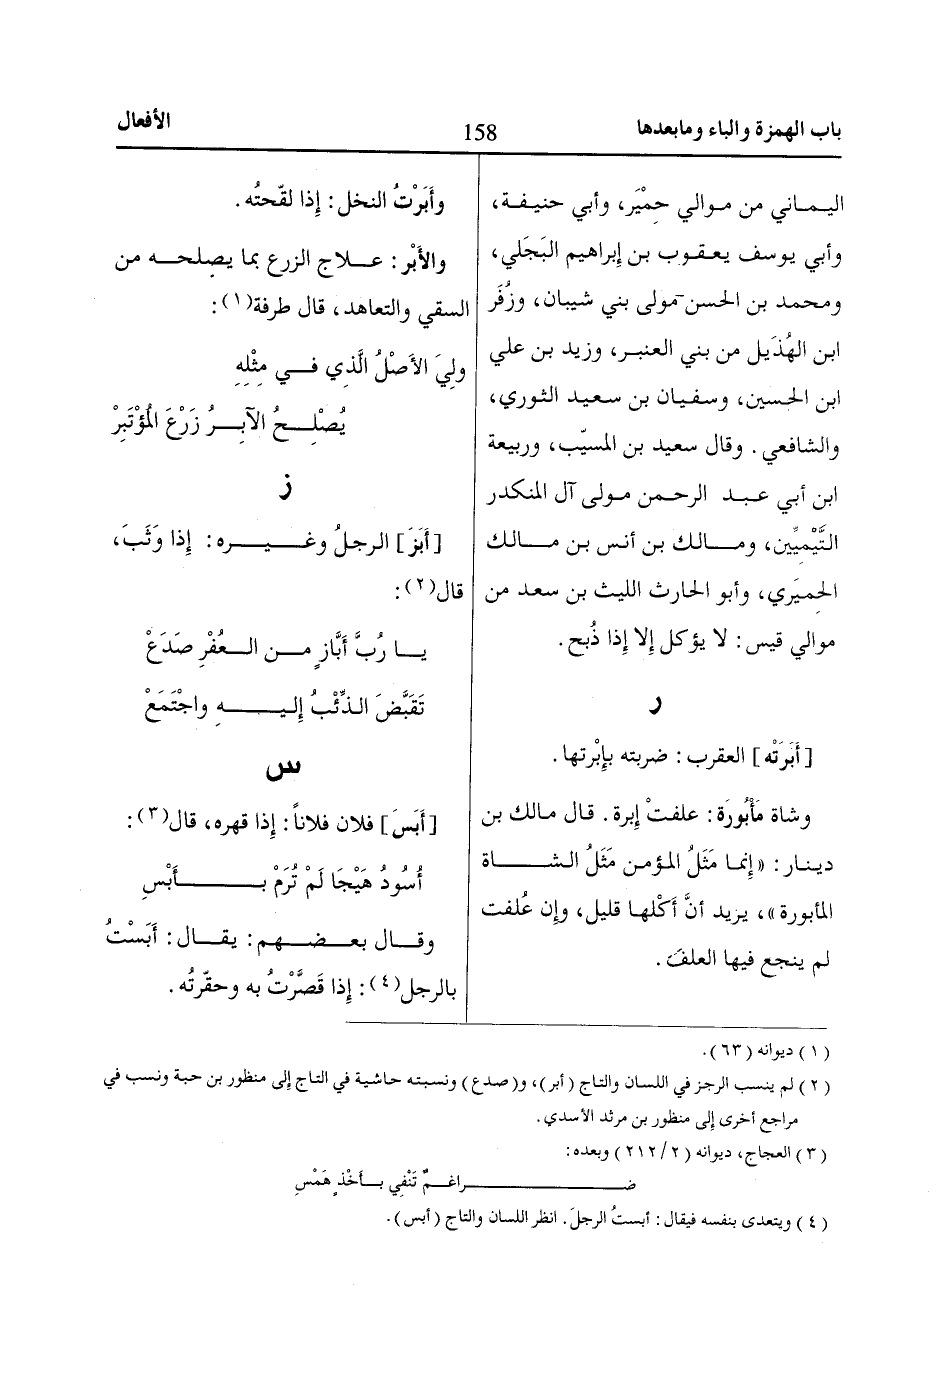 باب الهمزة والباء ومابعدها
158
الأفعال
اليماني من موالي حِمْيَر، وأبي حنيفة،
وأبي يوسف يعقوب بن إبراهيم البَجَلي،
ومحمد بن الحسن مولى بني شيبان، وزُفَر
ابن الهُذَيل من بني العنبر، وزيد بن علي
ابن الحسين، وسفيان بن سعيد الثوري،
والشافعي. وقال سعيد بن المسيّب، وربيعة
ابن أبي عبد الرحمن مولى آل المنكدر
التَّيْمِيِّين، ومالك بن أنس بن مالك
الحِميَري، وأبو الحارث الليث بن سعد من
موالي قيس: لا يؤكل إلا إذا ذُبح.
ر
[أَبَرَتْه] العقرب: ضربته بإِبْرتها.
وشاة مَأْبُورَة: علفتْ إبرة. قال مالك بن
دينار: «إِنما مَثَلُ المؤمن مَثَلُ الشاة
المأبورة»، يريد أنَّ أَكْلها قليل، وإن عُلفت
لم ينجع فيها العلف.
وأَبَرْتُ النخل: إذا لقّحتُه.
والأَبْر: علاج الزرع بما يصلحه من
السقي والتعاهد، قال طرفة(١):
ولِيَ الأَصْلُ الَّذي في مِثْلِهِ
يُصْلِحُ الآبِرُ زَرْعَ المُؤْتَبِرْ
ز
[أَبَزَ] الرجلُ وغيره: إذا وَثَبَ،
قال(٢):
يا رُبَّ أَبَّازٍ من العُفْرِ صَدَعْ
تَقَبَّضَ الذِّئْبُ إليه واجْتَمَعْ
س
[أَبَسَ] فلان فلاناً: إذا قهره، قال(٣):
أُسُودُ هَيْجَا لَمْ تُرَمْ بأَبْسِ
وقال بعضهم: يقال: أَبَسْتُ
بالرجل(٤): إذا قَصَّرْتُ به وحقّرتُه.
(١) ديوانه (٦٣).
(٢) لم ينسب الرجز في اللسان والتاج (أبز)، و(صدع) ونسبته حاشية في التاج إلى منظور بن حبة ونسب في
مراجع أخرى إلى منظور بن مرثد الأسدي.
(٣) العجاج، ديوانه (٢/٢١٢) وبعده:
ضراغمٌ تَنْفِي بأَخْذٍ هَمْسِ
(٤) ويتعدى بنفسه فيقال: أبستُ الرجلَ. انظر اللسان والتاج (أبس).